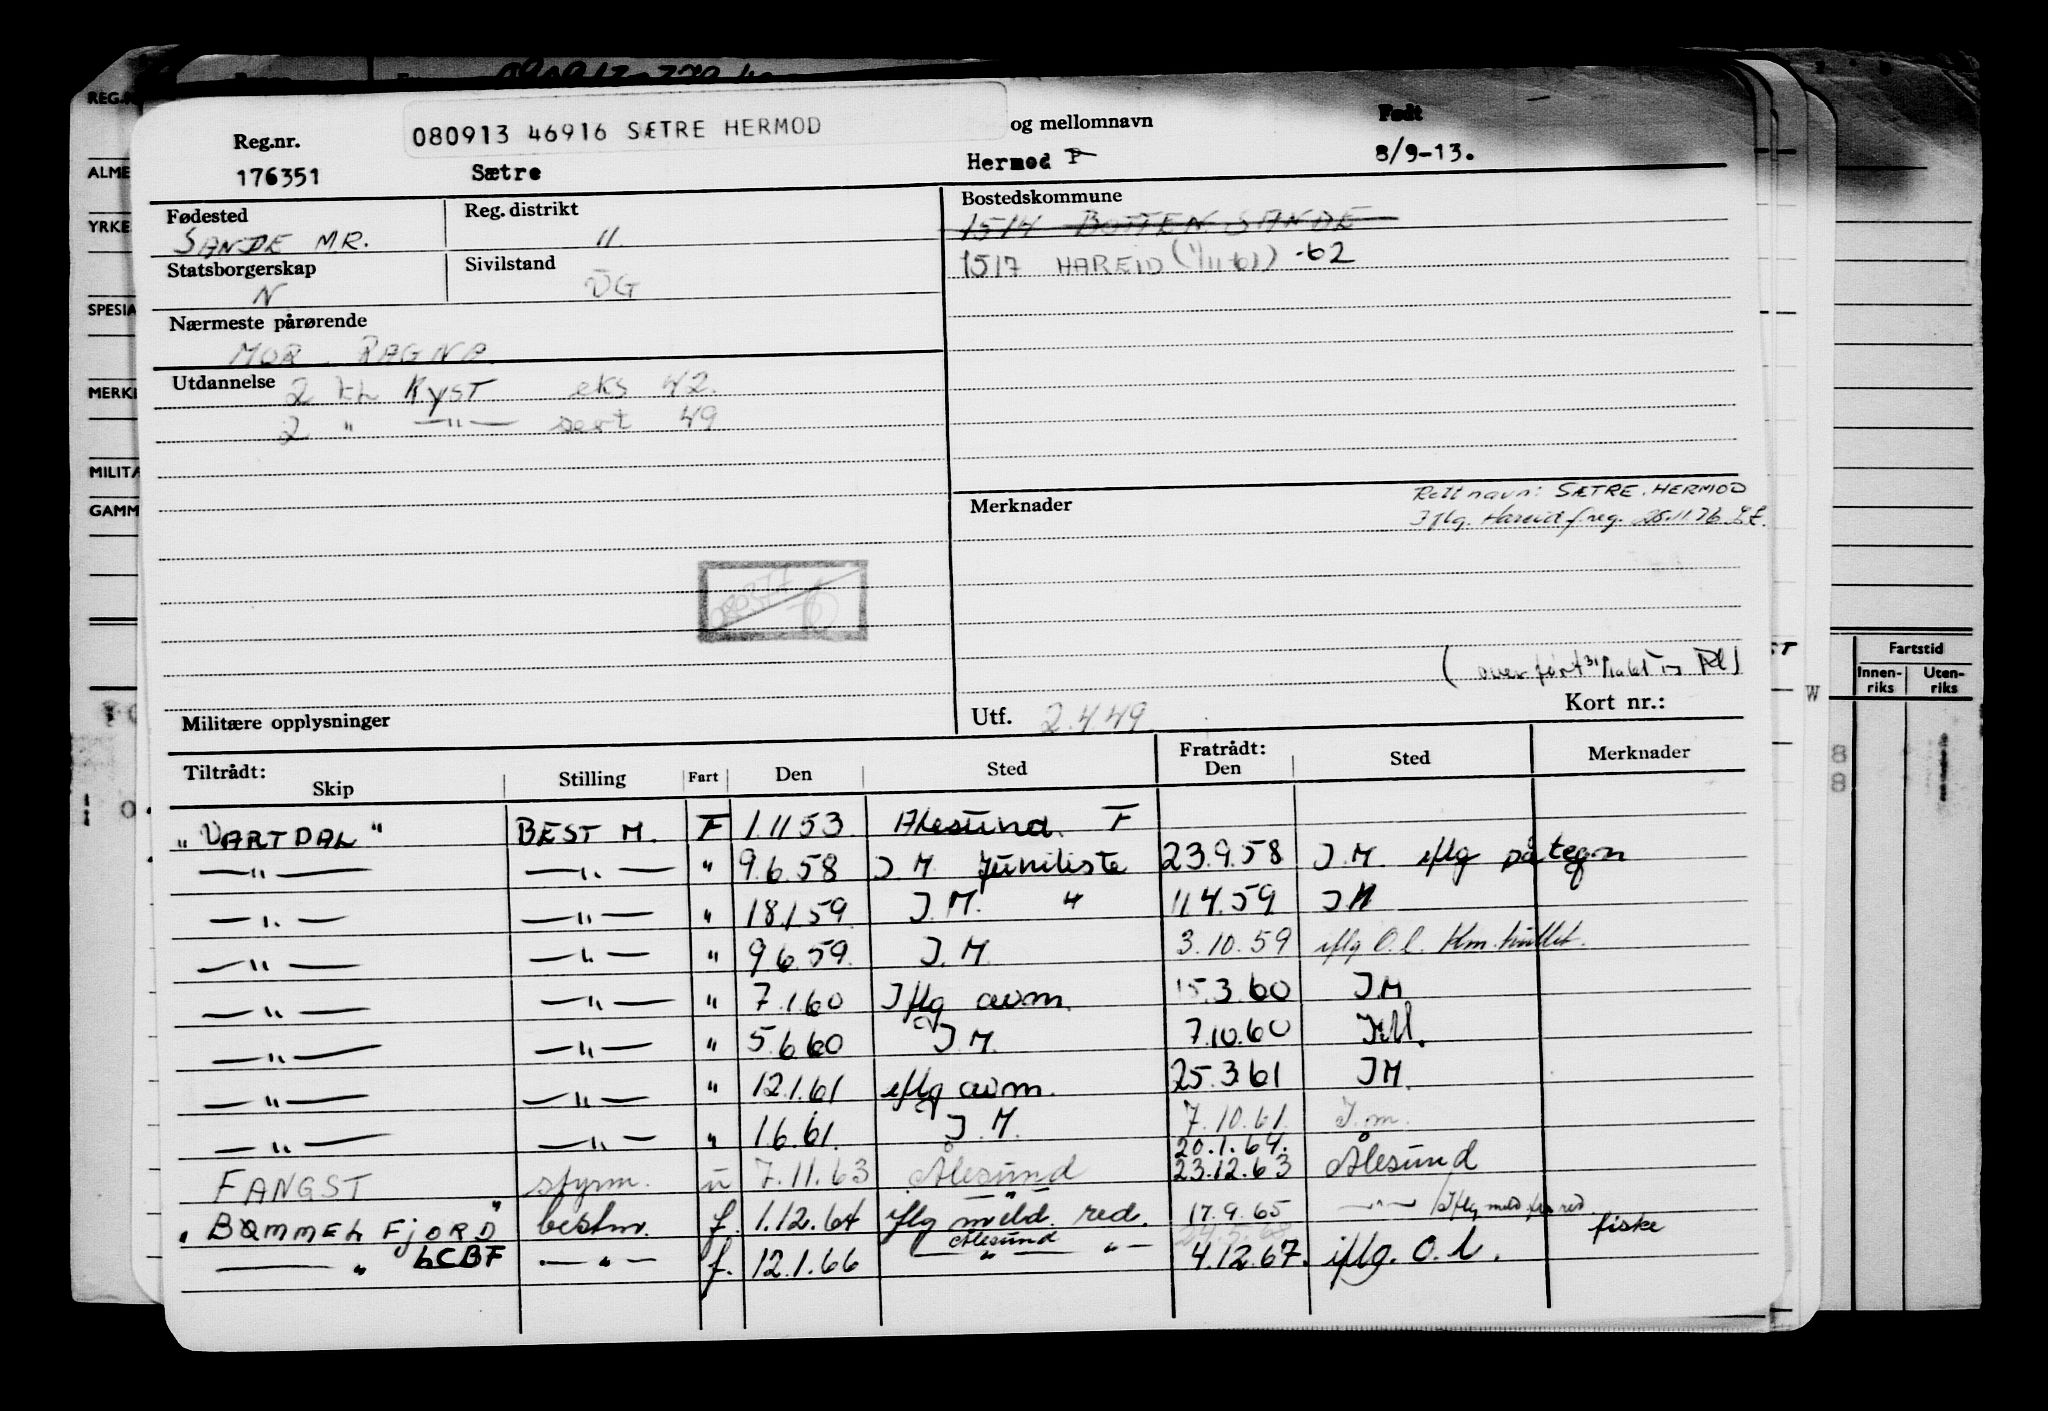 080913 46916 SÆTRE HERMOD
Reg.nr. og mellomnavn Født
176351 Sætre Hermod P 8/9-13.
Fødested Reg. distrikt Bostedskommune
SANDE MR. 11 1514 BOTTEN SANDE
Statsborgerskap Sivilstand 1517 HAREID (1/11-61) -62
N UG
Nærmeste pårørende
MOR RAGNA
Utdannelse 2 kl Kyst eks 42.
2 " —"— sert 49
Merknader Rett navn: SÆTRE, HERMOD
Iflg. Hareid f.reg. 25.11.76
(overført
Militære opplysninger Utf. 2.4.49 Kort nr.:
Tiltrådt: Fratrådt:
Skip Stilling Fart Den Sted Den Sted Merknader
"VARTDAL" BEST M. F 1.11 53. Ålesund. F
—"— —"— " 9.6.58 I.M. Juniliste 23.9.58 I.M. iflg påtegn
—"— —"— " 18.1.59. I.M. " 11.4.59 IM
—"— —"— " 9.6.59. I.M. 3.10.59 iflg O.l.
—"— —"— " 7.1.60 Iflg avm. 15.3.60 I.M
—"— —"— " 5.6.60 I.M. 7.10.60 I.M.
—"— —"— " 12.1.61 iflg avm. 25.3.61 IM.
—"— —"— " 1.6.61. I.M. 7.10.61. I.m.
20.1.64.
FANGST styrm. u 7.11.63 Ålesund 23.12.63 Ålesund
"BØMMELFJORD" bestm. f. 1.12.64 iflg meld. red. 17.9.65 —"— Iflg meld fra red.
Ålesund fiske
—"— LCBF —"— f. 12.1.66 —"— "— 4.12.67. iflg. O.l.
REG.N
ALME
YRKE
SPESIA
MERKI
MILITÆ
GAMM
Fartstid
Innen-
riks
Uten-
riks
W
8
8